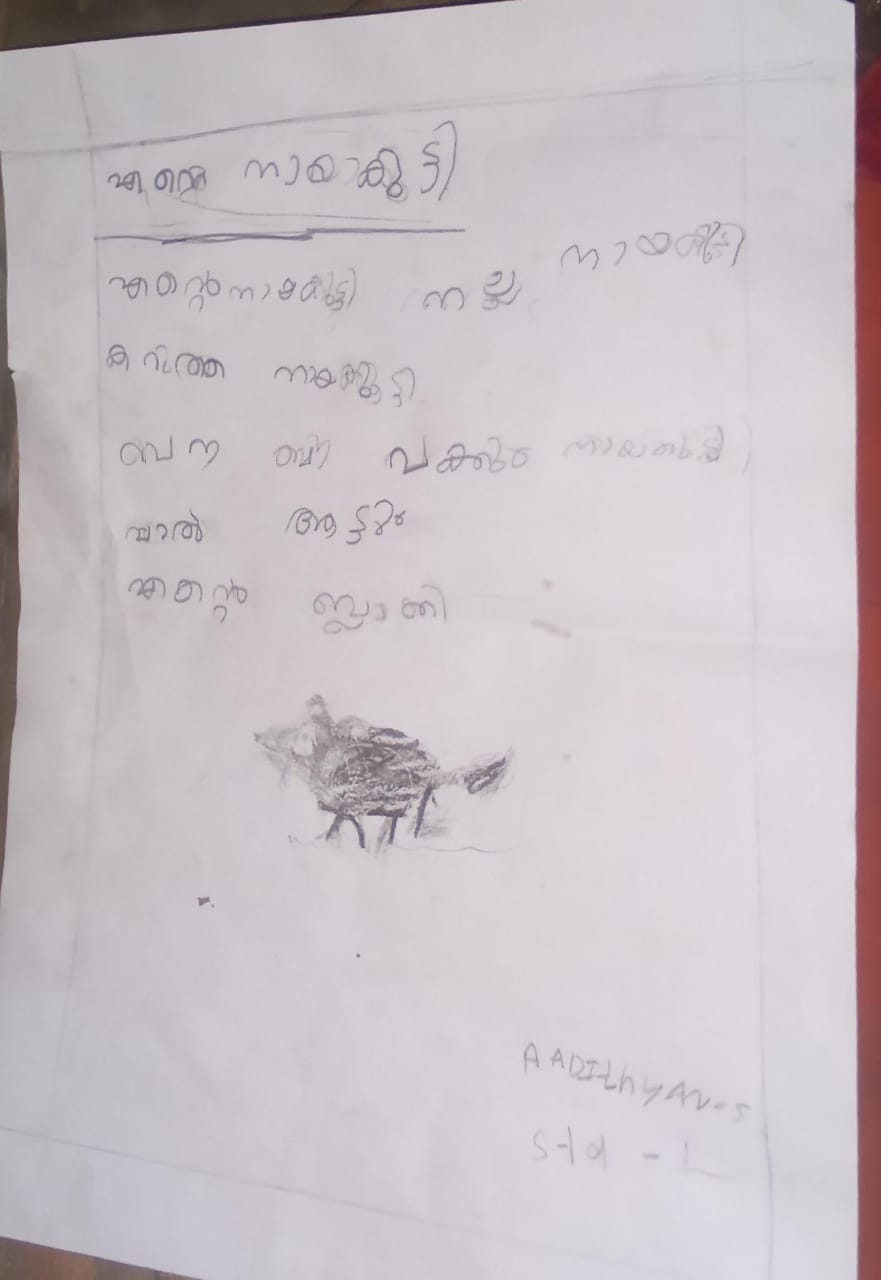 എന്റെ നായാക്കുട്ടി
എന്റെ നായകുട്ടി നല്ല നായകുട്ടി
കറുത്ത നായക്കുട്ടി
വക്കും നായകുട്ടി
വാൽ ആട്ടും
എന്റെ ബ്ലാക്കി
AADIthyAN-S
Std -